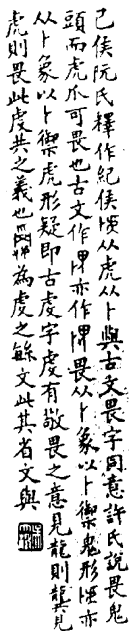 己侯阮氏釋作紀侯从虎从卜與古文畏字同意許氏說畏鬼
頭而虎爪可畏也古文作亦作畏从卜象以卜禦鬼形亦
从卜象以卜禦虎形疑即古虔字虔有敬畏之意見龍則龔見
虎則畏此虔共之義也為虔之餘文此其省文與